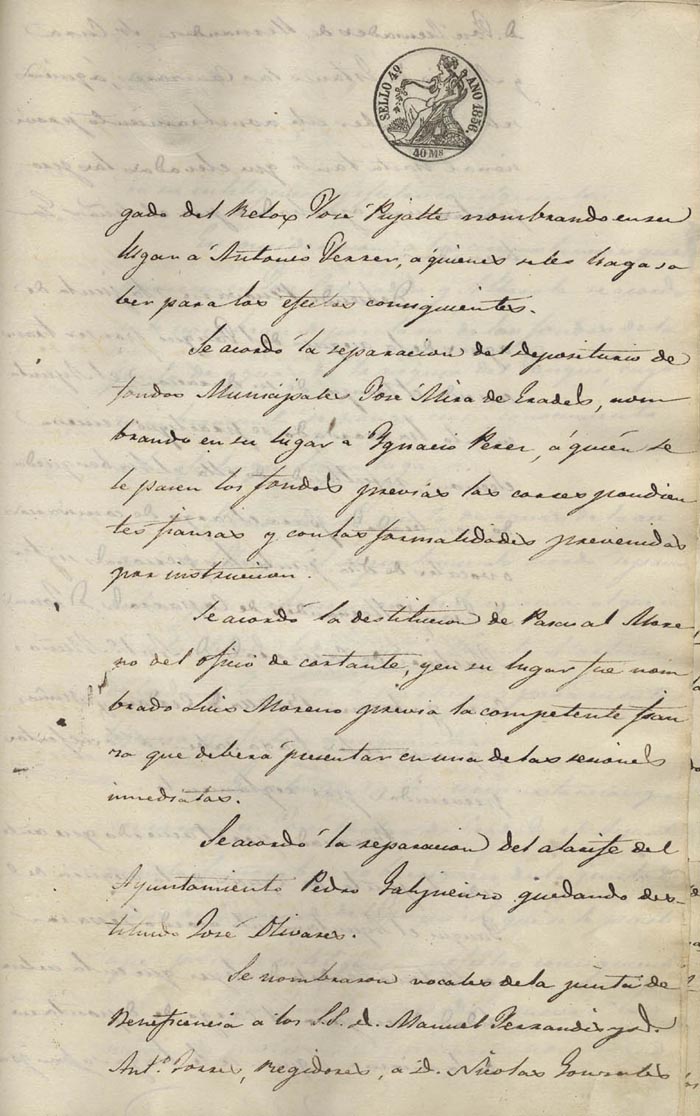 SELLO 4º AÑO 1856.
40 Ms
gado del Relox José Pujalte nombrando en su
lugar á Antonio Ferrer, á quienes se les haga sa
ber para los efectos consiguientes.
Se acordó la separacion del depositario de
fondos Municipales José Mira de Eradels, nom
brando en su lugar a Ygnacio Perez, á quién se
le pasen los fondos previas las correspondien
tes fianzas y con las formalidades prevenidas
por instruccion.
Se acordó la destitucion de Pascual More
no del oficio de cortante, y en su lugar fue nom
brado Luis Moreno previa la competente fian
za que deberá presentar en una de las sesiones
inmediatas.
Se acordó la separacion del alarife del
Ayuntamiento Pedro quedando des-
tituido José Olivares.
Se nombraron vocales de la junta de
Beneficencia a los S.S. d. Manuel Ferrandis y d.
Antº. Torres, Regidores, a D. Nicolas Gonzales